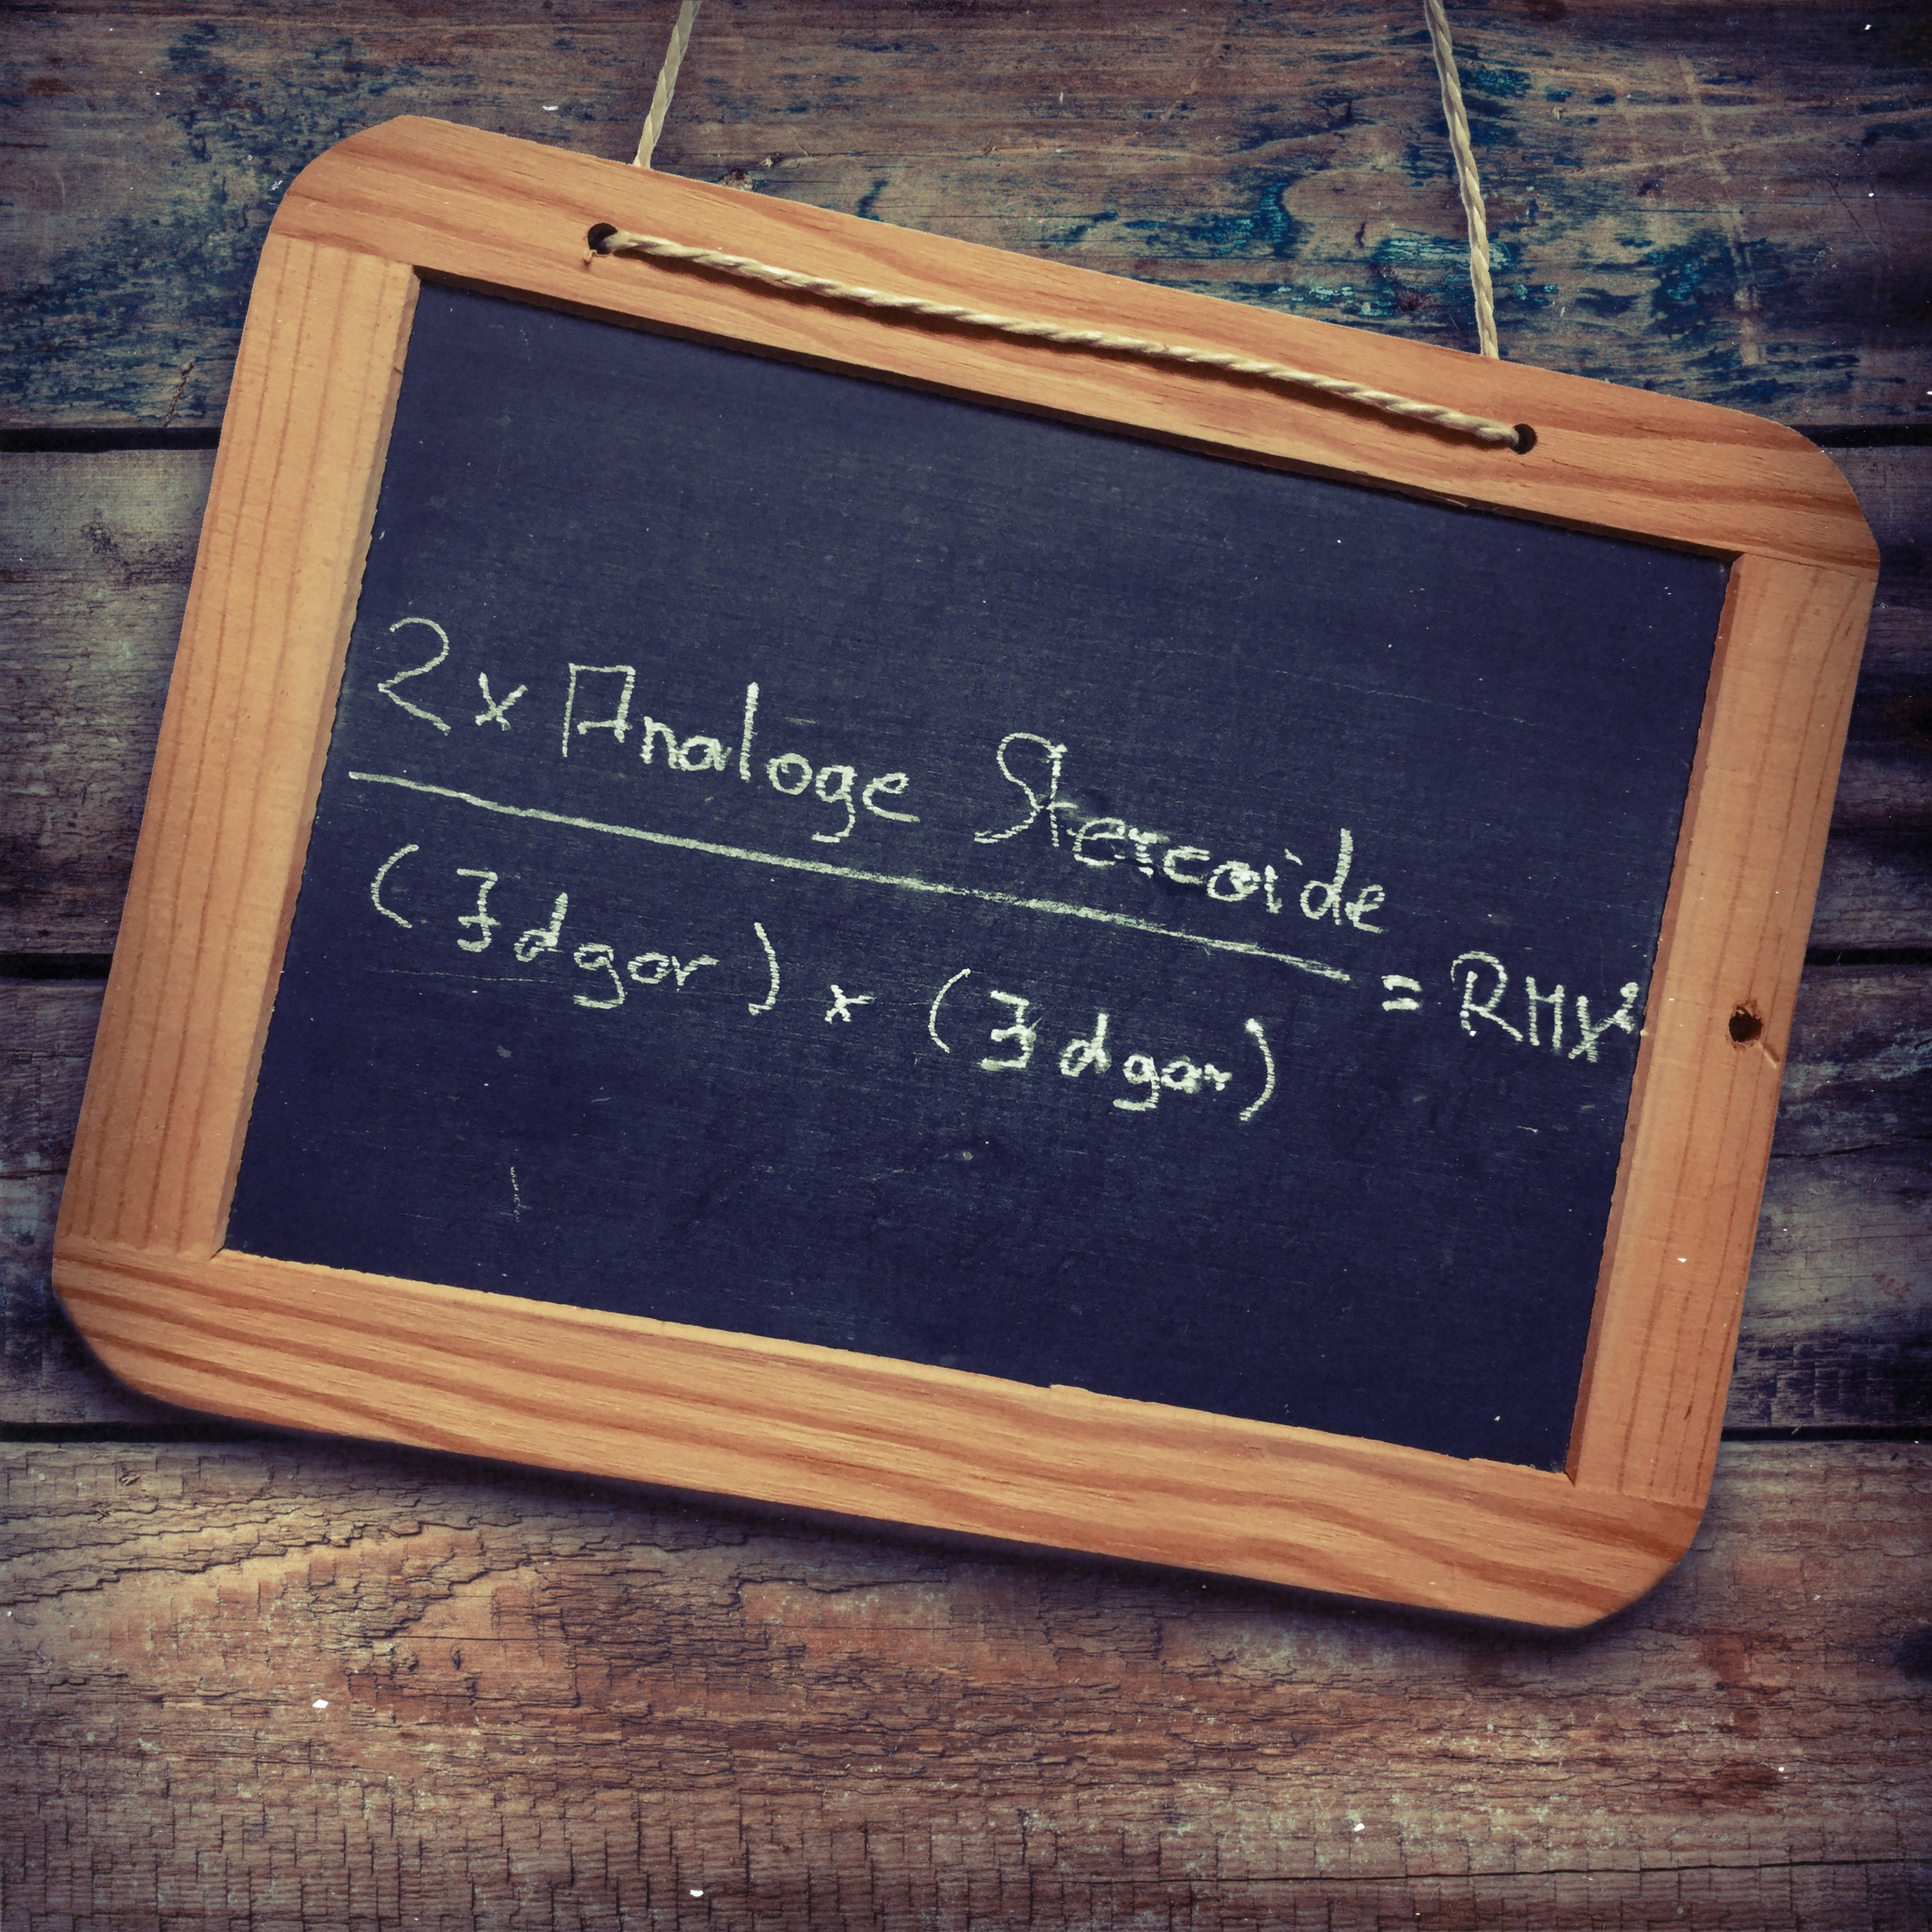 2x Analoge Steroide
(Edgar) x (Edgar)
= RMX²